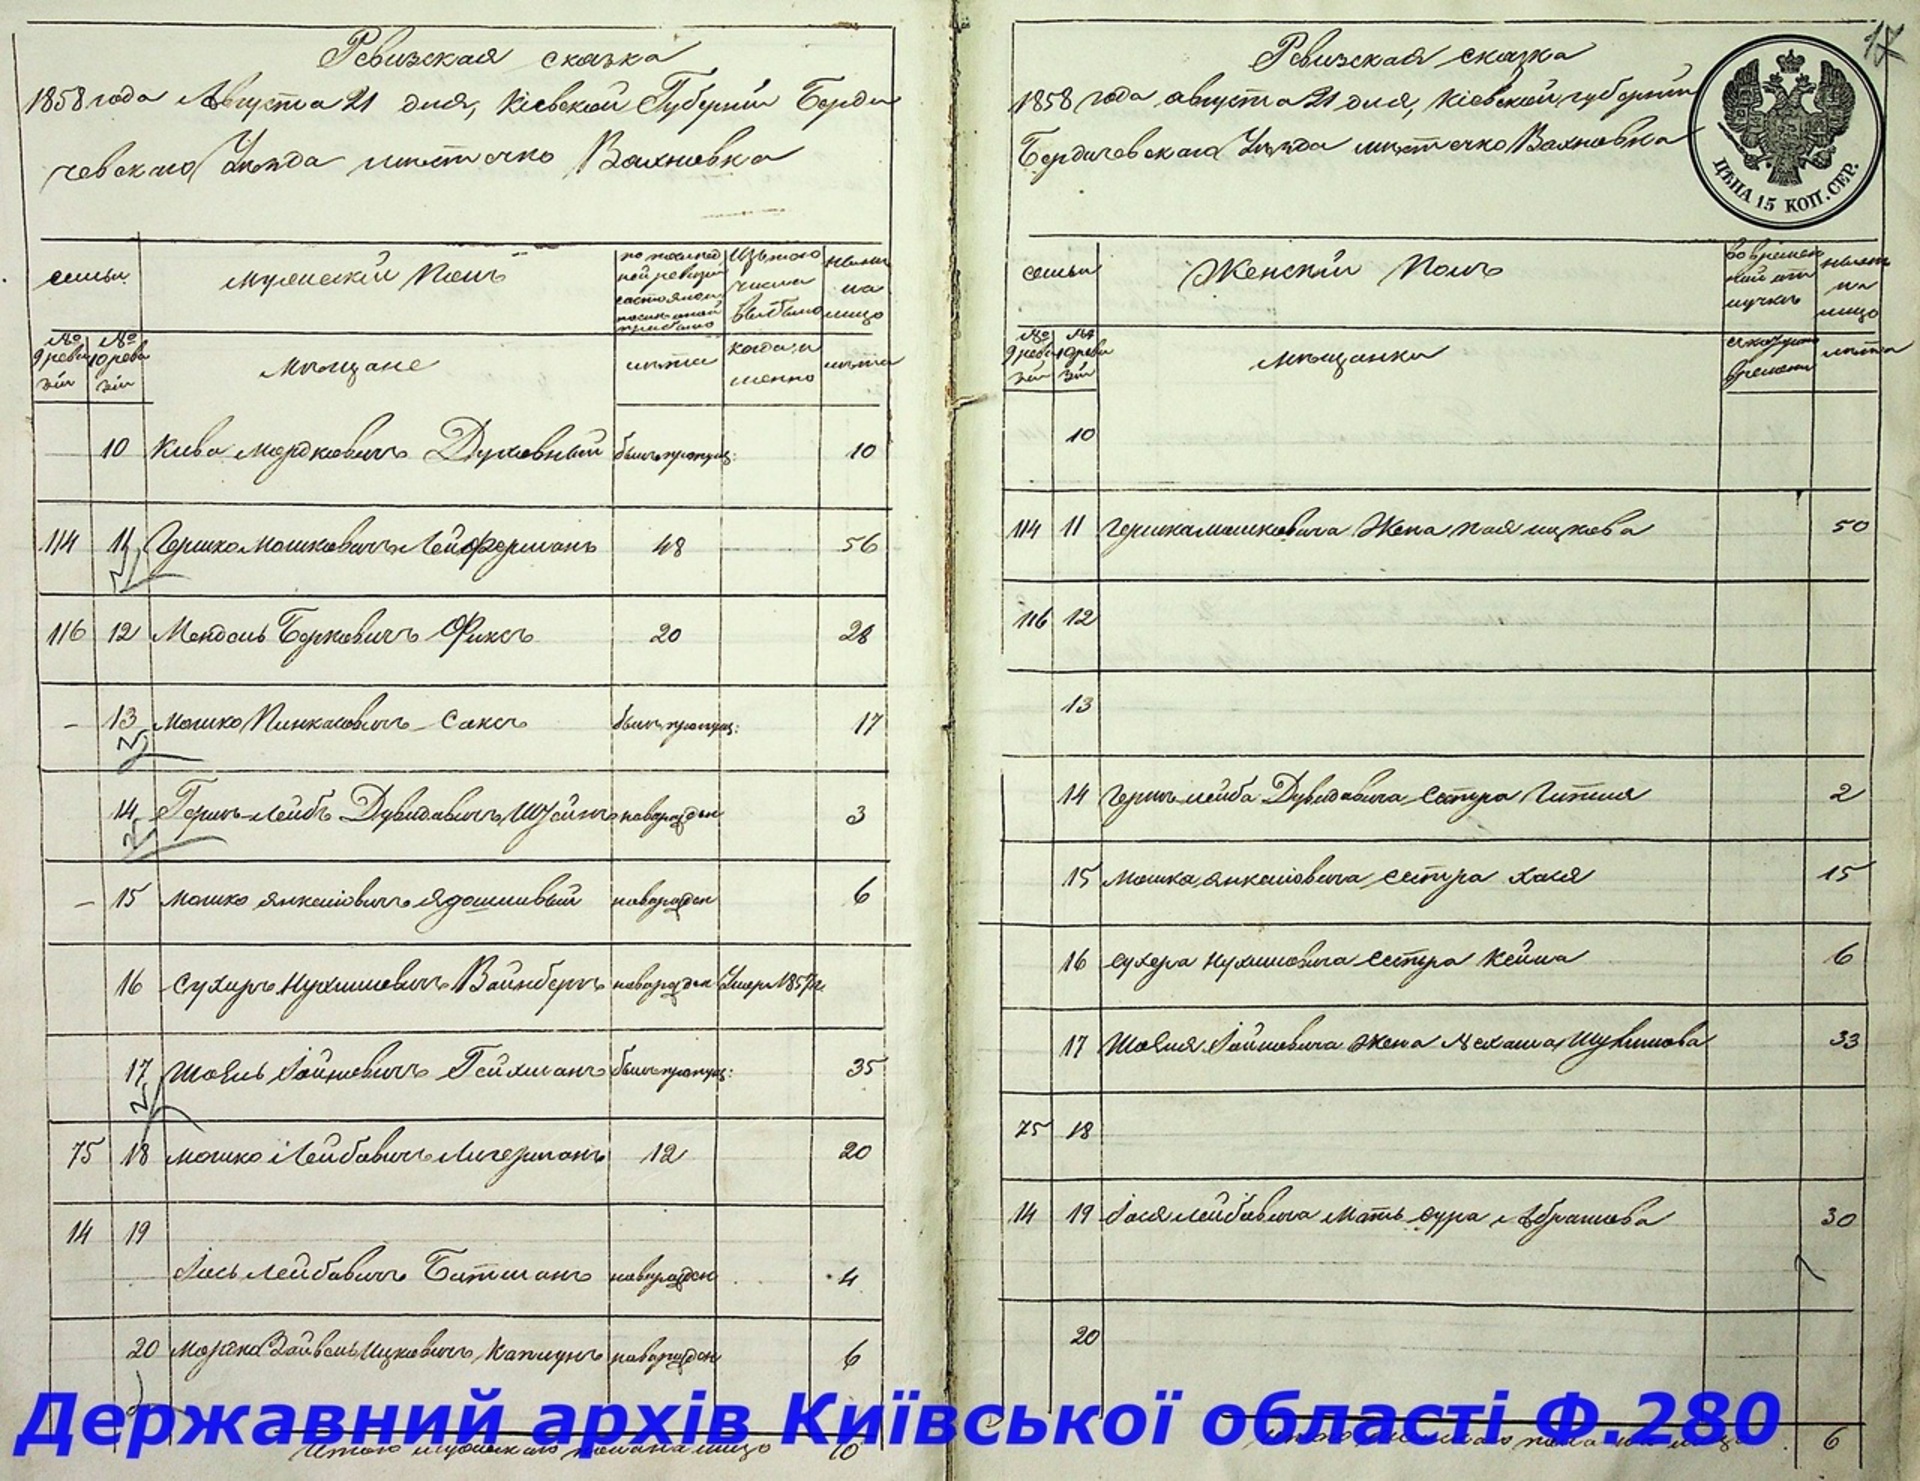 Ревизская сказка
1858 года Августа 21 дня, Кіевской Губерніи Берди
чевскаго Уѣзда мѣстечко Вахновка
семьи
Мужескій Полъ
по послѣд
ней ревизіи
состояло и
послѣ оной
прибыло
Изъ того
числа
выбыло
Нынѣ
на
лицо
№
9 реви
зіи
№
10 реви
зіи
Мѣщане
лѣта
когда и
менно
лѣта
10 Кива Мордковичъ Духовный былъ пропущ: 10
114 11 Гершко Мошковичъ Лейферманъ 48 56
116 12 Мендель Берковичъ Фиксъ 20 28
- 13 Мошко Пинкасовичъ Саксъ былъ пропущ: 17
14 Гершъ-Лейбъ Дувидовичъ Штейнъ новорожден 3
- 15 Мошко Янкелiовичъ новорожден 6
16 Сухеръ Нухимовичъ Вайнбергъ новорожден Умеръ 1857 г.
17 Шоэль Іойновичъ Гейхманъ былъ пропущ: 35
75 18 Мошко Лейбовичъ Лигерманъ 12 20
14 19
Іось Лейбовичъ Битманъ новорожден 4
20 Мордко Вайвель Ицковичъ Каплунъ новорожден 6
Итого мужескаго пола на лицо 10
17
Ревизская сказка
1858 года августа 21 дня, Кіевской губерніи
Бердичевскаго Уѣзда мѣстечко Вахновка
ЦѢНА 15 КОП. СЕР.
семьи
Женскій Полъ
во времен
ной от
лучкѣ
Нынѣ
на
лицо
№
9 реви
зіи
№
10 реви
зіи
Мѣщанки
съ котораго
времени
лѣта
10
114 11 Гершка Мошковича Жена Ицкова 50
116 12
13
14 Гершъ-Лейба Дувидовича Сестра Гитля 2
15 Мошка Янкелiовича сестра Хася 15
16 Сухера Нухимовича сестра Кейла 6
17 Шоэля Іойновича Жена 33
75 18
14 19 Іося Лейбовича Мать Сура Абрамова 30
20
Итого женскаго пола на лицо 6
Державний архів Київської області Ф.280